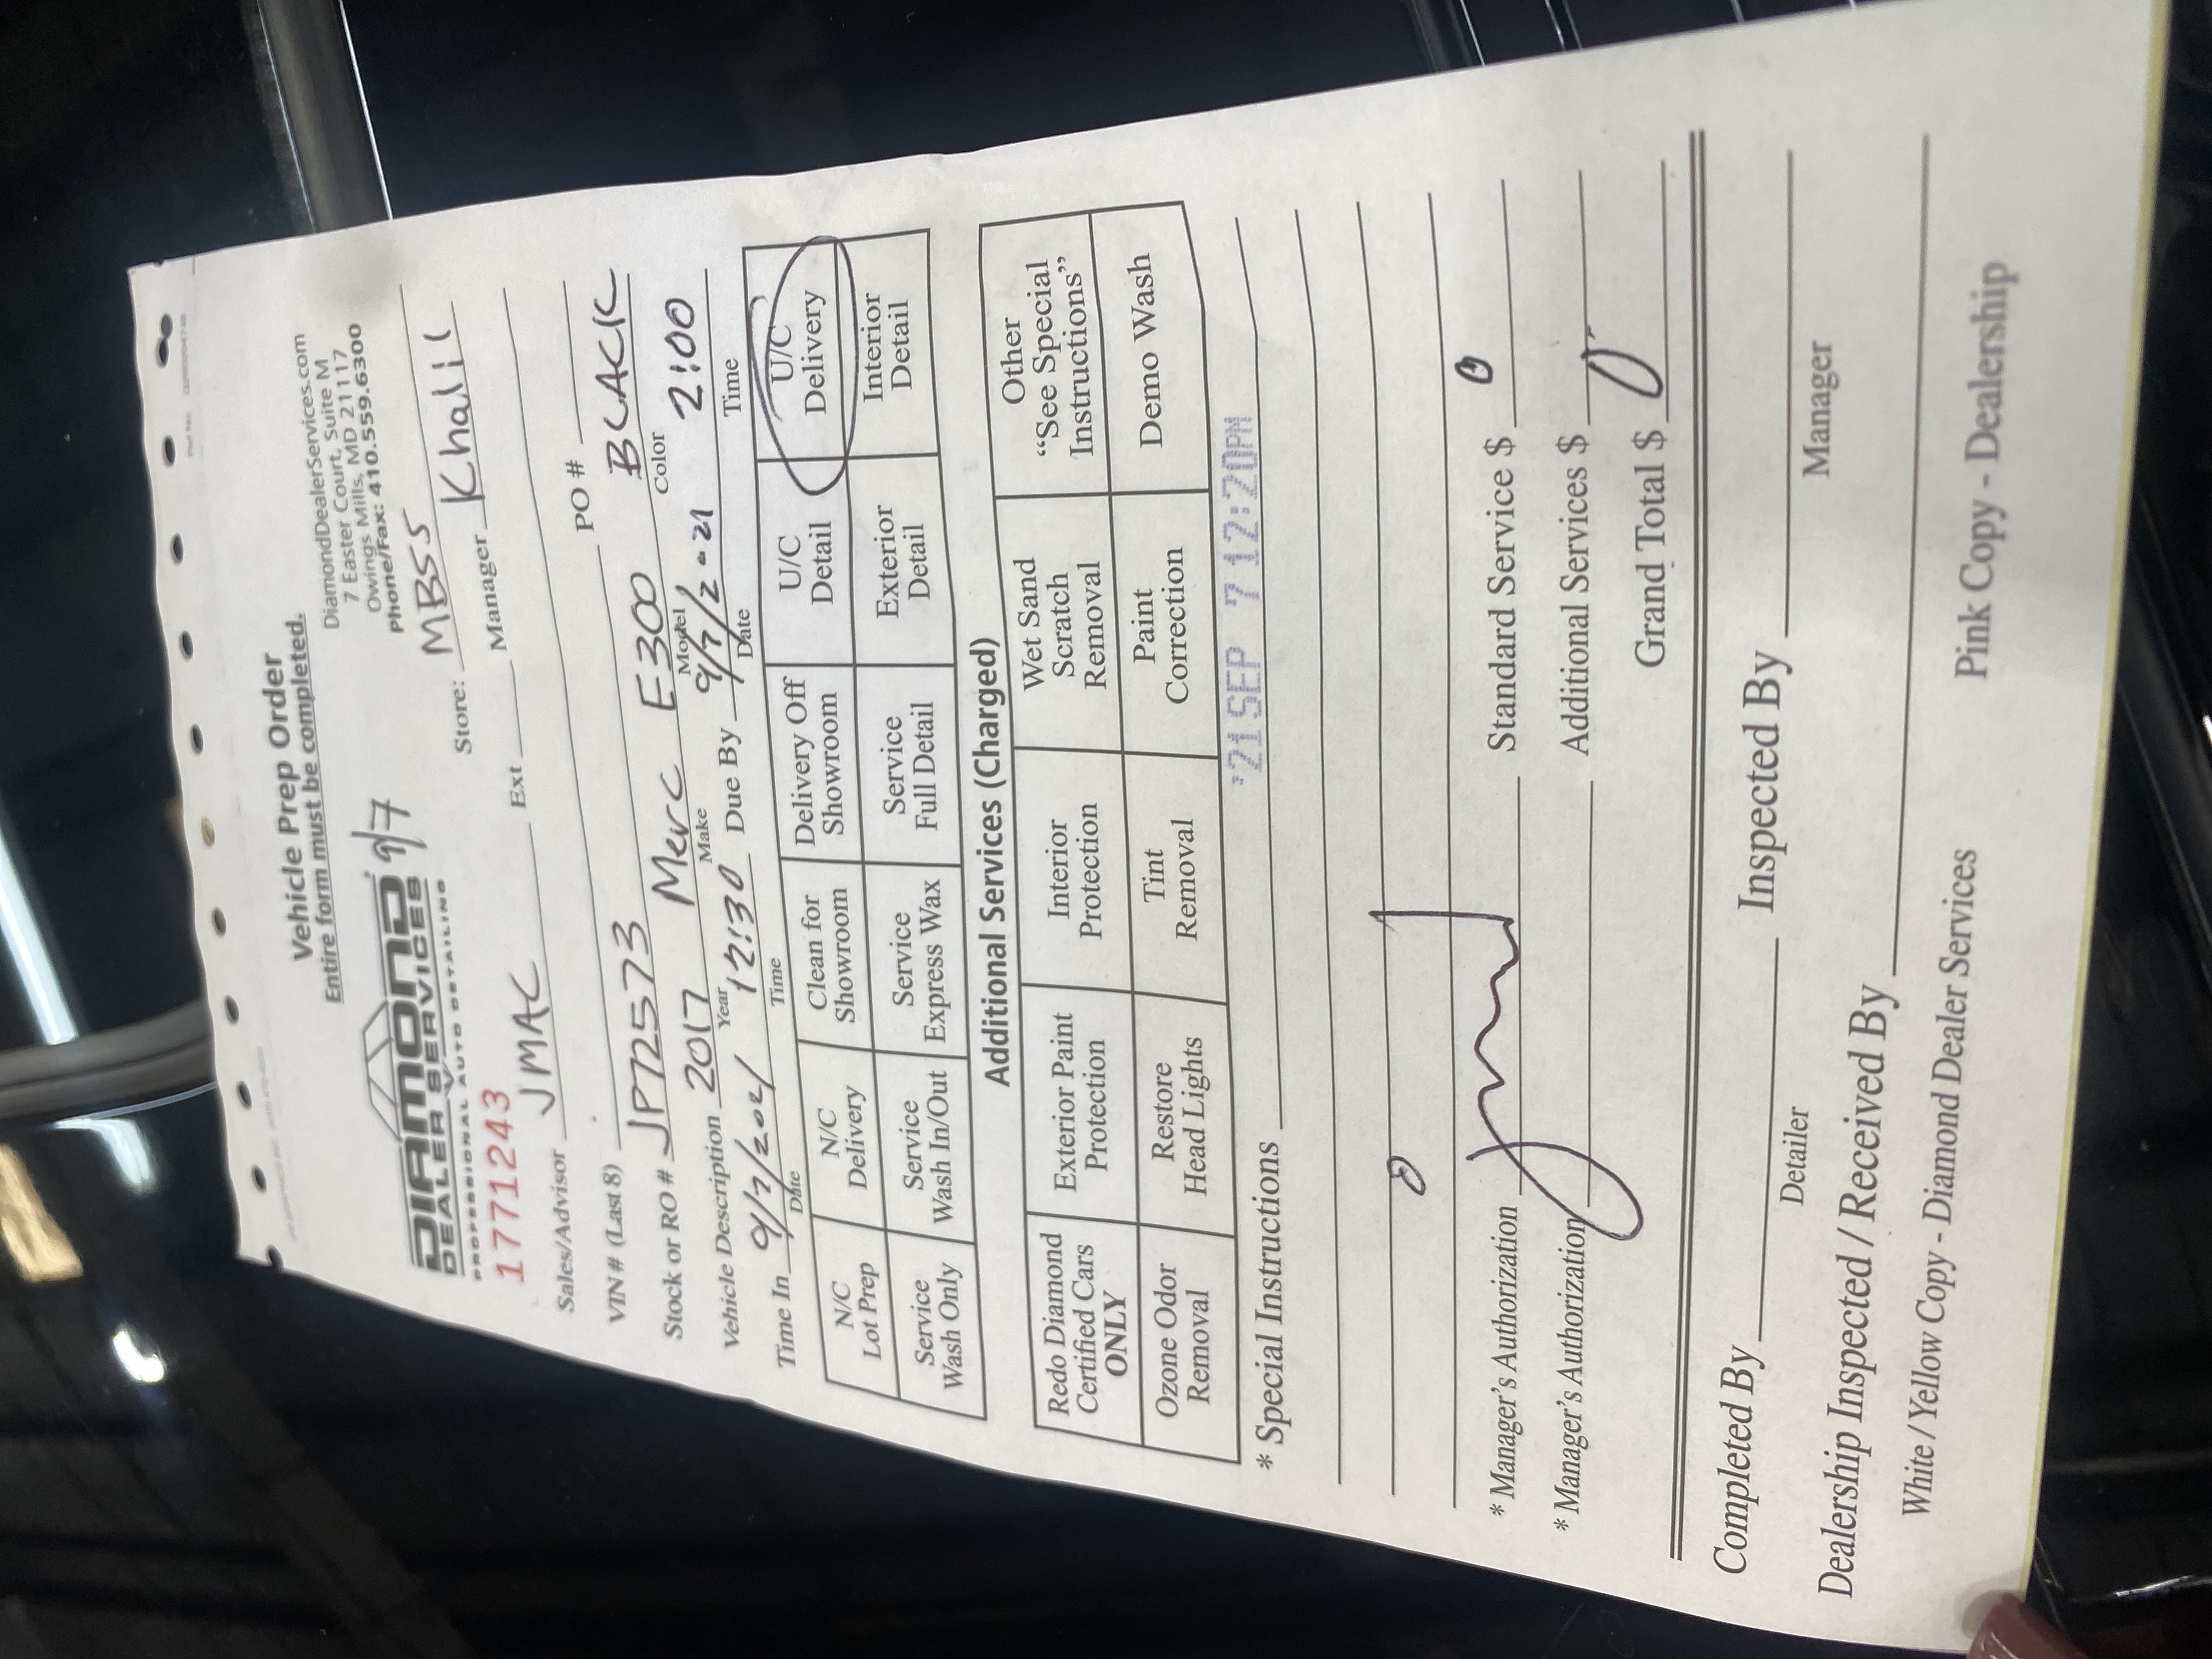 Vehicle Prep Order
Entire form must be completed.
DIAMOND
DEALER SERVICES
PROFESSIONAL AUTO DETAILING
9/7
DiamondDealerServices.com
7 Easter Court, Suite M
Owings Mills, MD 21117
Phone/Fax: 410.559.6300
1771243
Store: MBSS
Sales/Advisor JMAC Ext Manager Khalil
VIN # (Last 8) PO #
Stock or RO # JP72573
Vehicle Description 2017 Merc E300 BLACK
Year Make Model Color
Time In 9/7/2021 12:30 Due By 9/7/2021 2:00
Date Time Date Time
N/C Lot Prep N/C Delivery Clean for Showroom Delivery Off Showroom U/C Detail U/C Delivery
Service Wash Only Service Wash In/Out Service Express Wax Service Full Detail Exterior Detail Interior Detail
Additional Services (Charged)
Redo Diamond Certified Cars ONLY Exterior Paint Protection Interior Protection Wet Sand Scratch Removal Other "See Special Instructions"
Ozone Odor Removal Restore Head Lights Tint Removal Paint Correction Demo Wash
'21 SEP 7 12:20PM
* Special Instructions
* Manager's Authorization Standard Service $ 0
* Manager's Authorization Additional Services $
Grand Total $ 0
Completed By Inspected By
Detailer Manager
Dealership Inspected / Received By
White / Yellow Copy - Diamond Dealer Services Pink Copy - Dealership